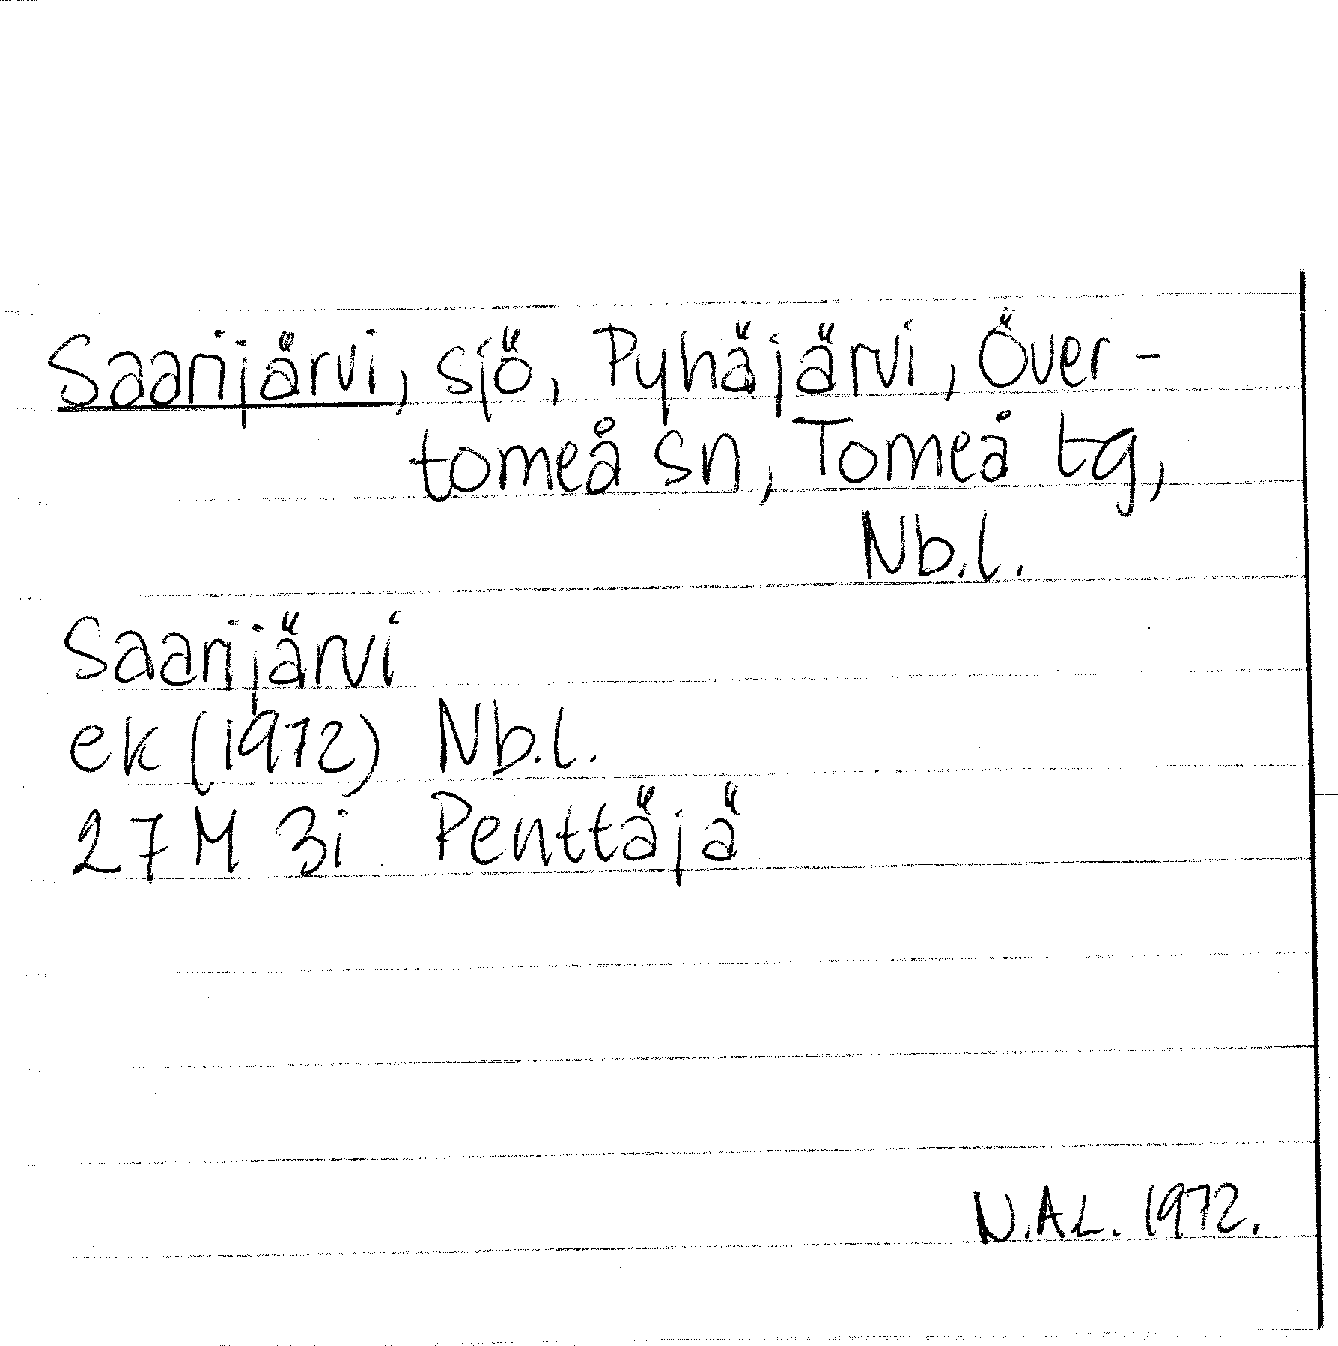 Saarijärvi, sjö, Pyhäjärvi, Över-
torneå sn, Torneå tg,
Nb.l.
Saarijärvi
ek (1972) Nb.l.
27 M 3i Penttäjä
N.A.L. 1972.